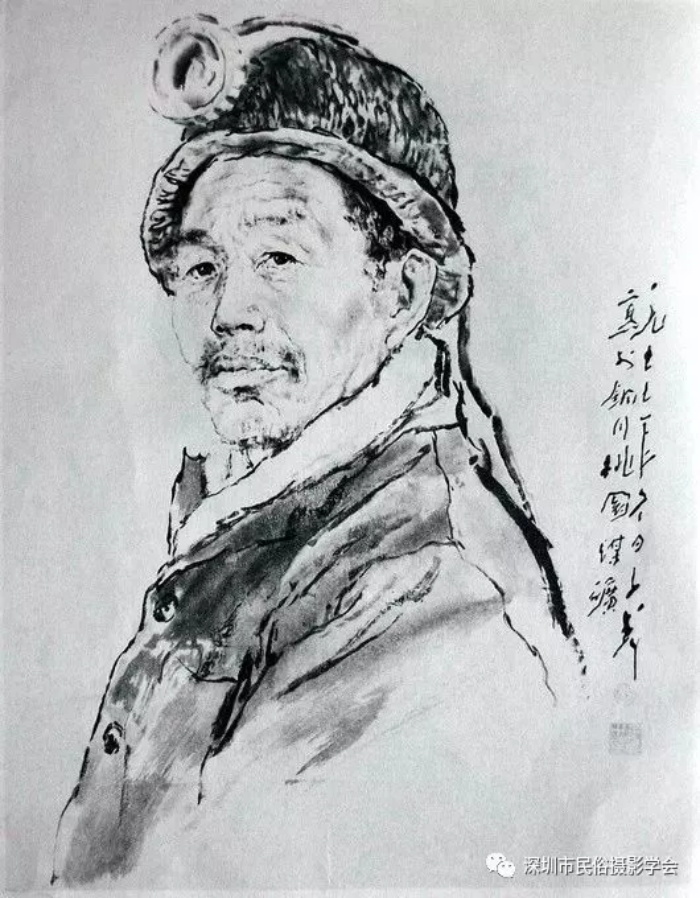 一九七七年冬日子武
寫於銅川桃園煤礦
深圳市民俗摄影学会